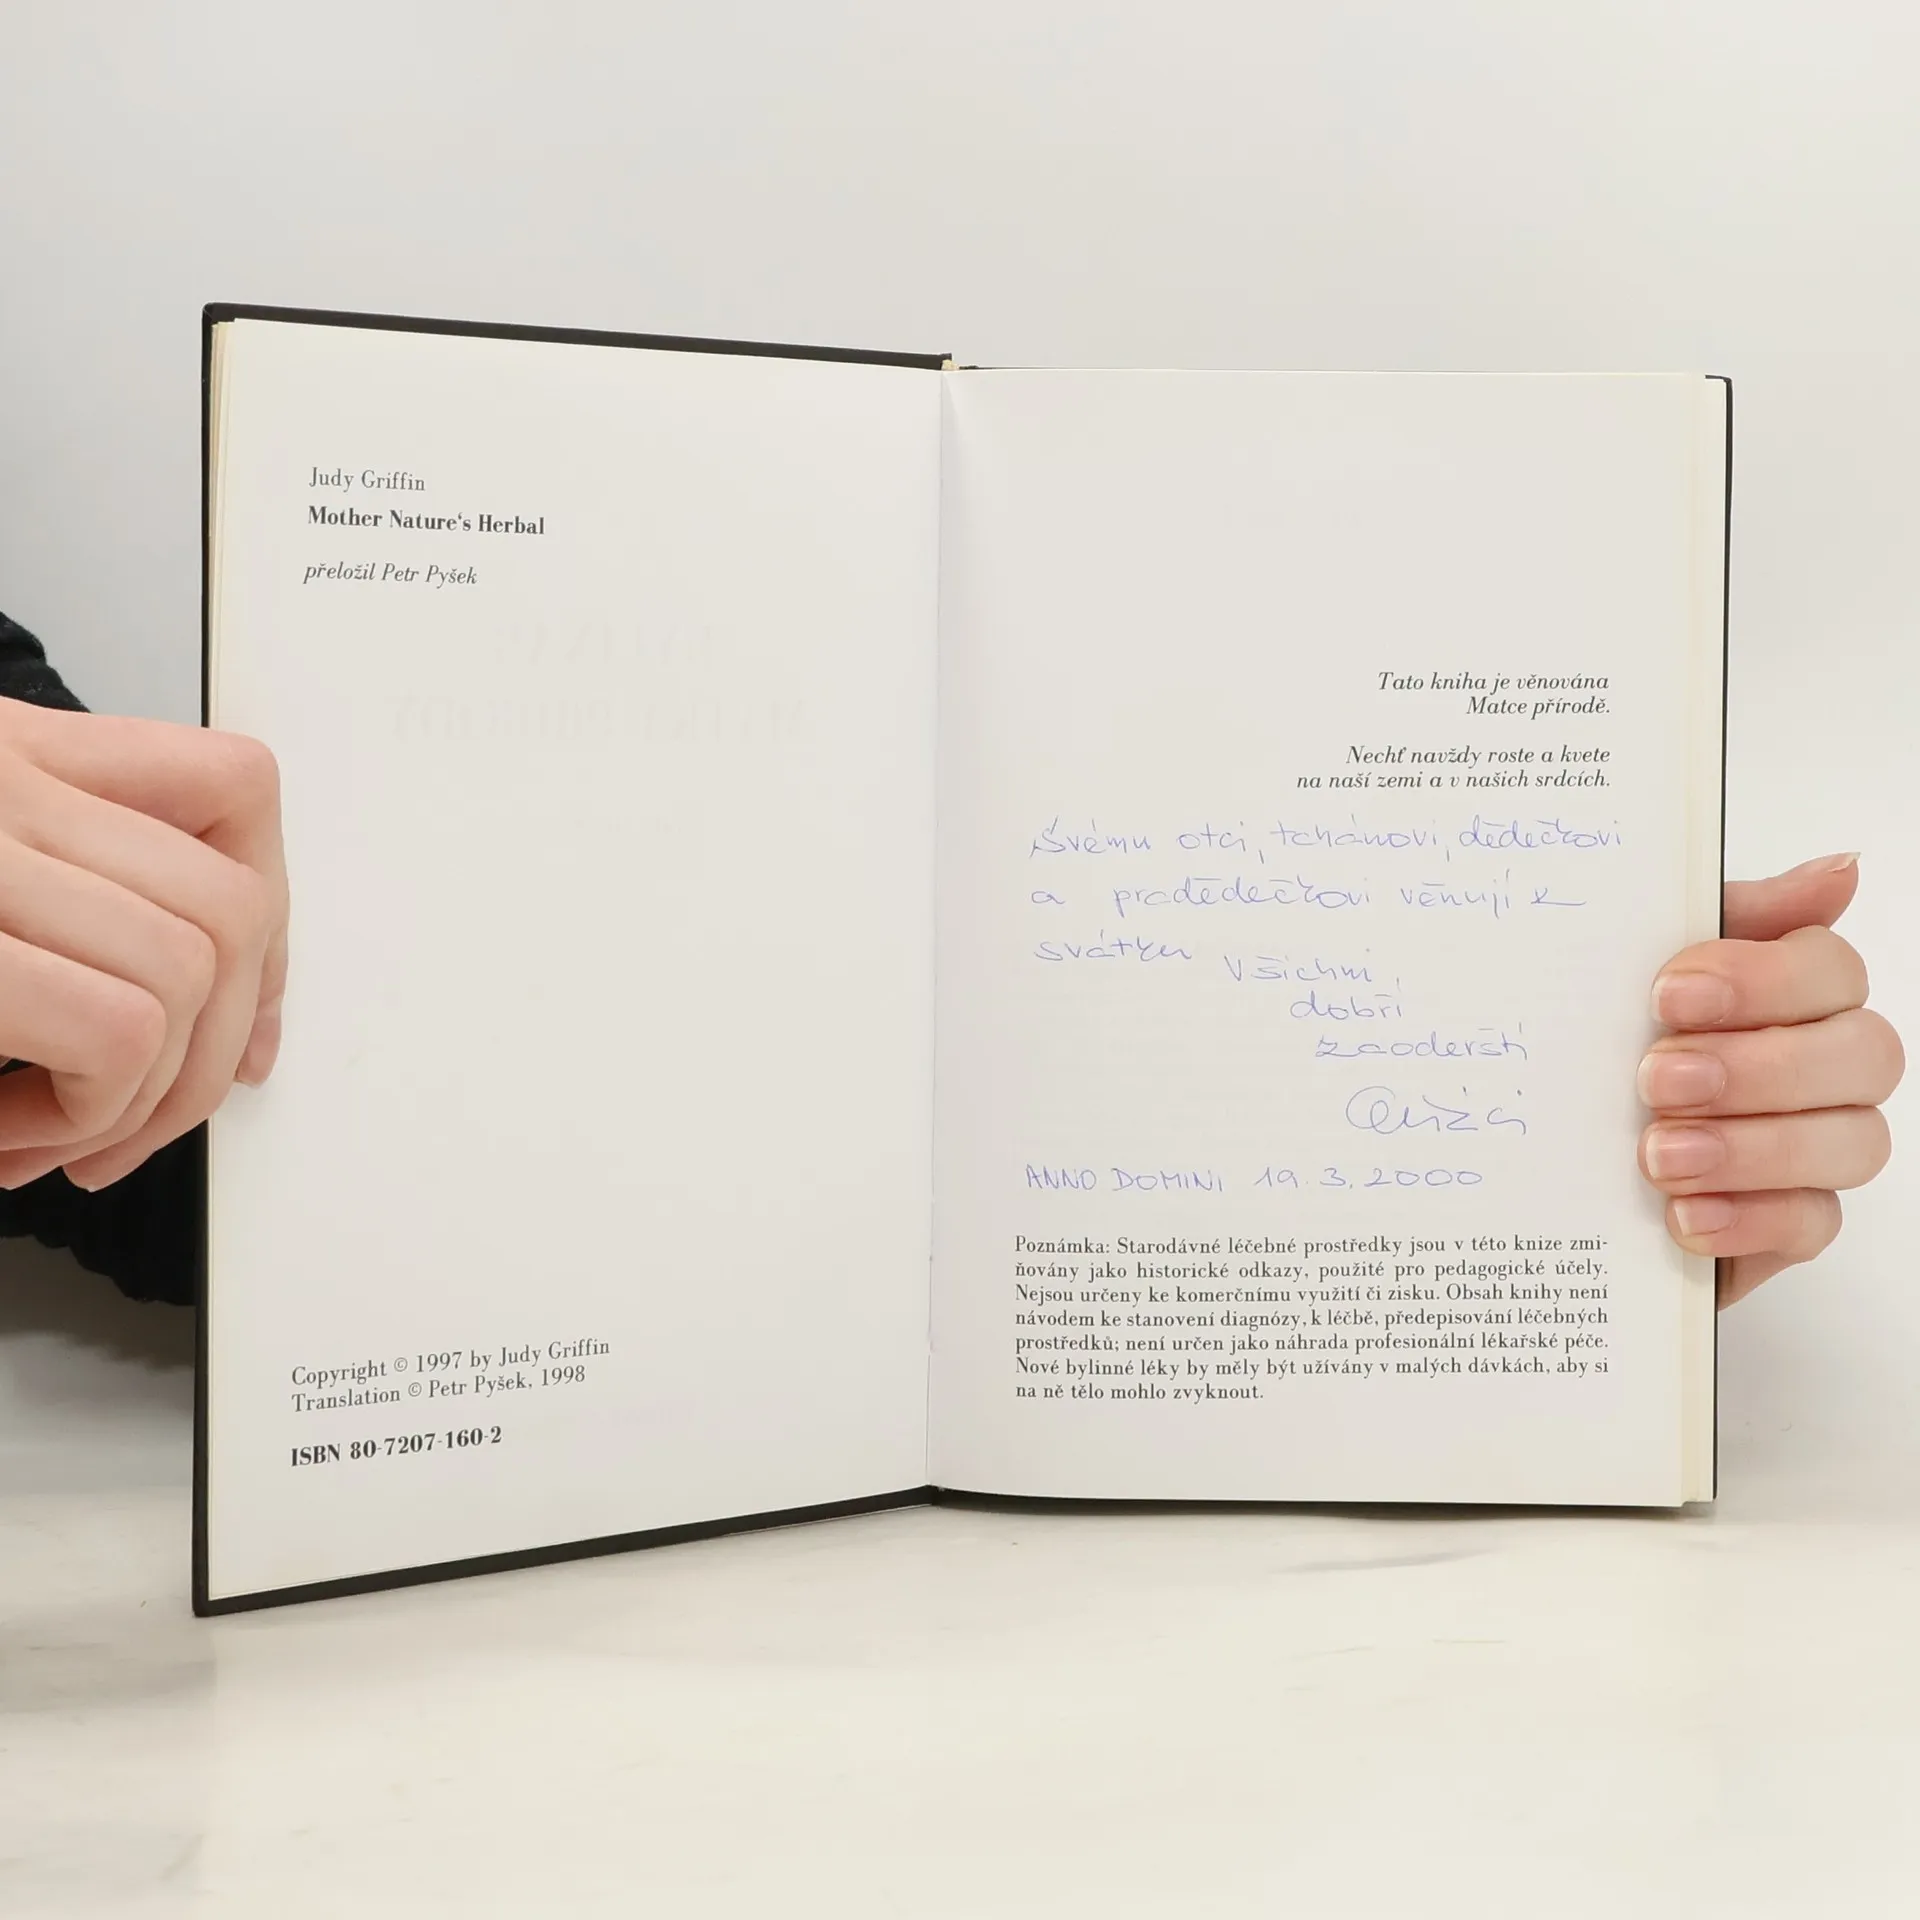 Judy Griffin
Mother Nature‘s Herbal
přeložil Petr Pyšek
Copyright © 1997 by Judy Griffin
Translation © Petr Pyšek, 1998
ISBN 80-7207-160-2
Tato kniha je věnována
Matce přírodě.
Nechť navždy roste a kvete
na naší zemi a v našich srdcích.
Svému otci, tchánovi, dědečkovi
a pradědečkovi věnují k
svátku
všichni
dobří
zaoderští
ANNO DOMINI 19. 3. 2000
Poznámka: Starodávné léčebné prostředky jsou v této knize zmi-
ňovány jako historické odkazy, použité pro pedagogické účely.
Nejsou určeny ke komerčnímu využití či zisku. Obsah knihy není
návodem ke stanovení diagnózy, k léčbě, předepisování léčebných
prostředků; není určen jako náhrada profesionální lékařské péče.
Nové bylinné léky by měly být užívány v malých dávkách, aby si
na ně tělo mohlo zvyknout.